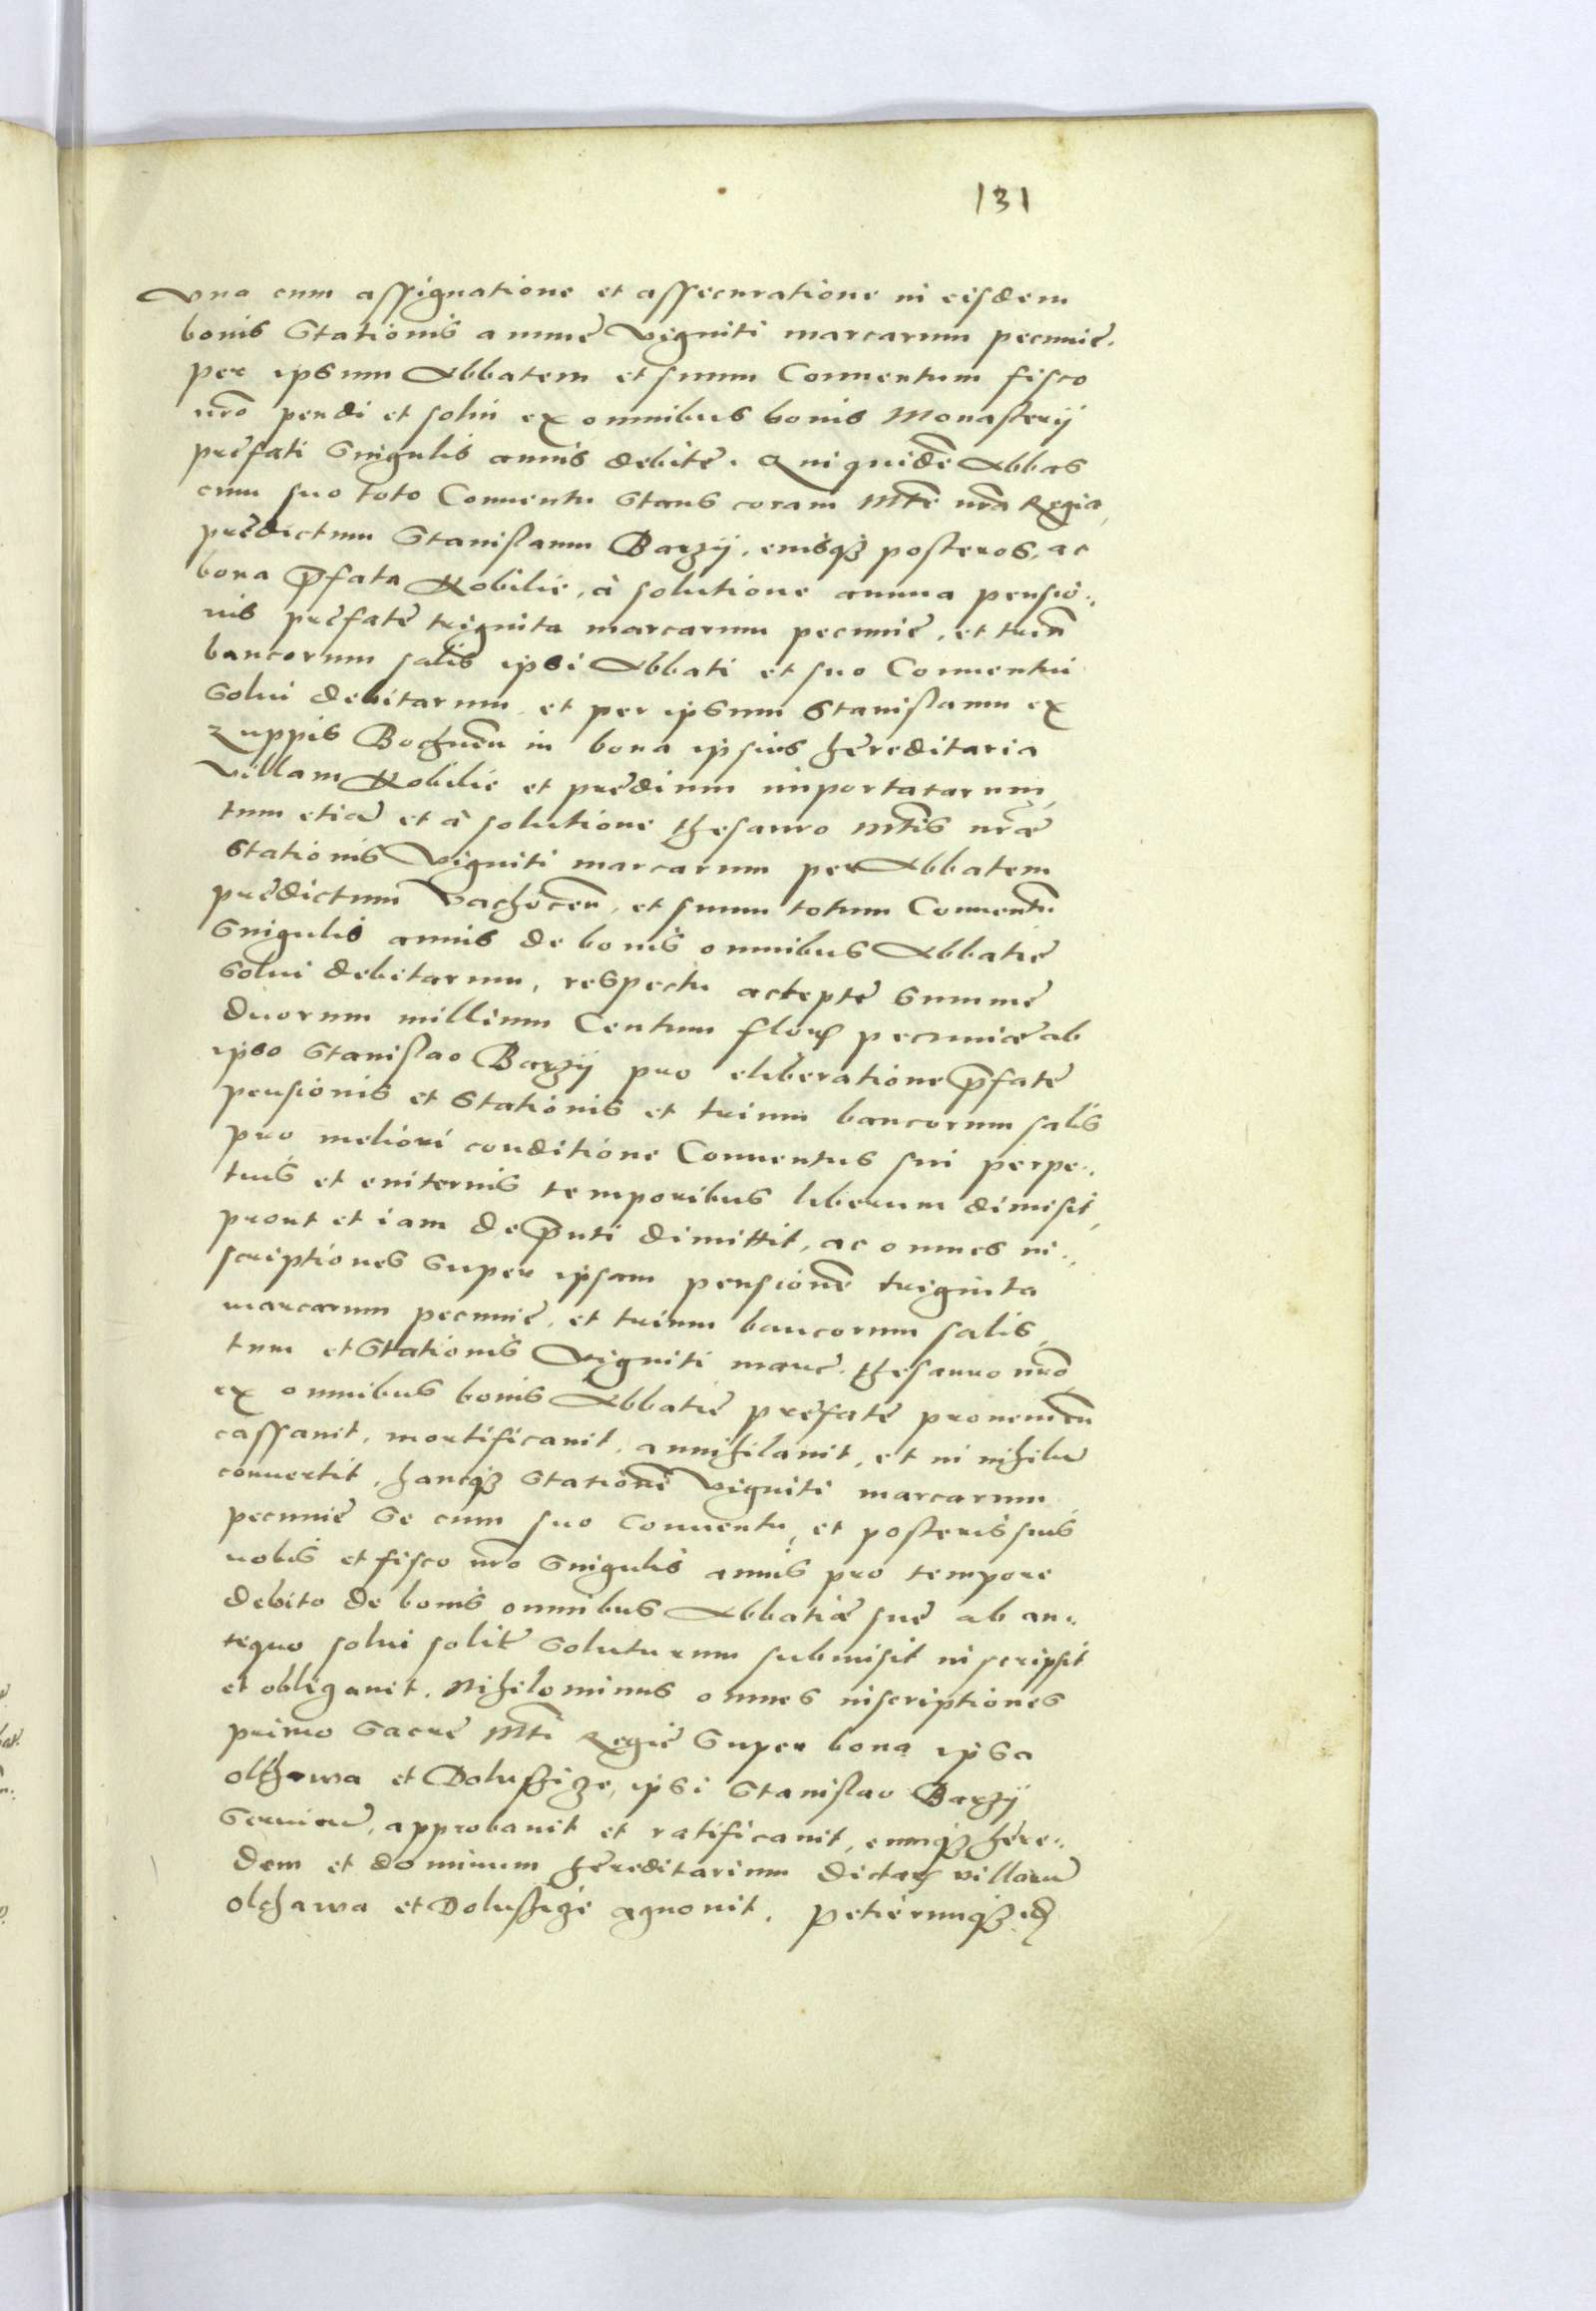 131
Vna cum assignatione et assecuratione in eisdem
bonis Stationis annuę Viginti marcarum pecunię.
per ipsum Abbatem et suum Conuentum fisco
nro pendi et solui ex omnibus bonis Monasterij
pręfati Singulis annis debitę. Qui quidē Abbas
cum suo toto Conuentu Stans coram Mte nra Regia,
prędictum Stanislaum Barzij, eiusqz posteros, ac
bona pfata Kobilie, à solutione annua pensio:,
nis pręfatę triginta marcarum pecunię, et trium
bancorum salis ipsi Abbati et suo Conuentui
Solui debitarum et per ipsum Stanislaum ex
Zuppis Bochnen in bona ipsius hęreditaria
Villam Kobilie et prędium importatarum,
tum etiā et à solutione thesauro Mtis nræ
Stationis Viginti marcarum per Abbatem
prędictum Vachocen, et suum totum Conuentū
Singulis annis de bonis omnibus Abbatię
Solui debitarum, respectu acceptę Summę
duorum millium Centum flor pecuniæ ab
ipso Stanislao Barzij pro eliberatione pfatę
pensionis et Stationis et trium bancorum salis
pro meliori conditione Conuentus sui perpe:,
tuis et euiternis temporibus liberum dimisit,
prout et iam de pnti dimittit, ac omnes in:,
scriptiones Super ipsam pensionē triginta
marcarum pecunię, et trium bancorum salis,
tum et Stationis Viginti marc. thesauro nro
ex omnibus bonis Abbatię pręfatę prouenien
cassauit, mortificauit, annihilauit, et in nihilū
conuertit, hancqz Stationē Viginti marcarum
pecunię Se cum suo Conuentu, et posteris suis
nobis et fisco nro Singulis annis pro tempore
debito de bonis omnibus Abbatiæ suę ab an:,
tiquo solui solitę Soluturum submisit inscripsit
et obligauit. Nihilominus omnes inscriptiones
primo Sacrę Mti Regię Super bona ipsa
Olchawa et Doluszize, ipsi Stanislao Barzij
Seruien, approbauit et ratificauit, eumqz hęre:,
dem et dominum hęreditarium dictar villarū
Olchawa et Doluszize agnouit. Petieruntqz